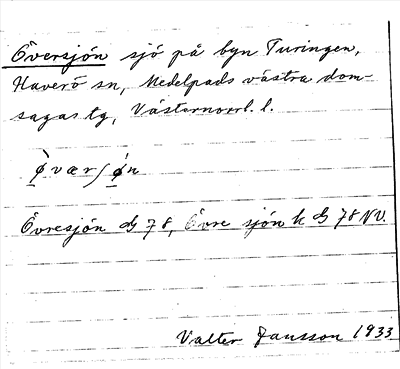 Översjön sjö på byn Turingen,
Haverö sn, Medelpads västra dom-
sagas tg, Västernorrl. l.
ø̀værʃø̀n
Övresjön GS 78, Övre sjön k GS 78 NV.
Valter Jansson 1933